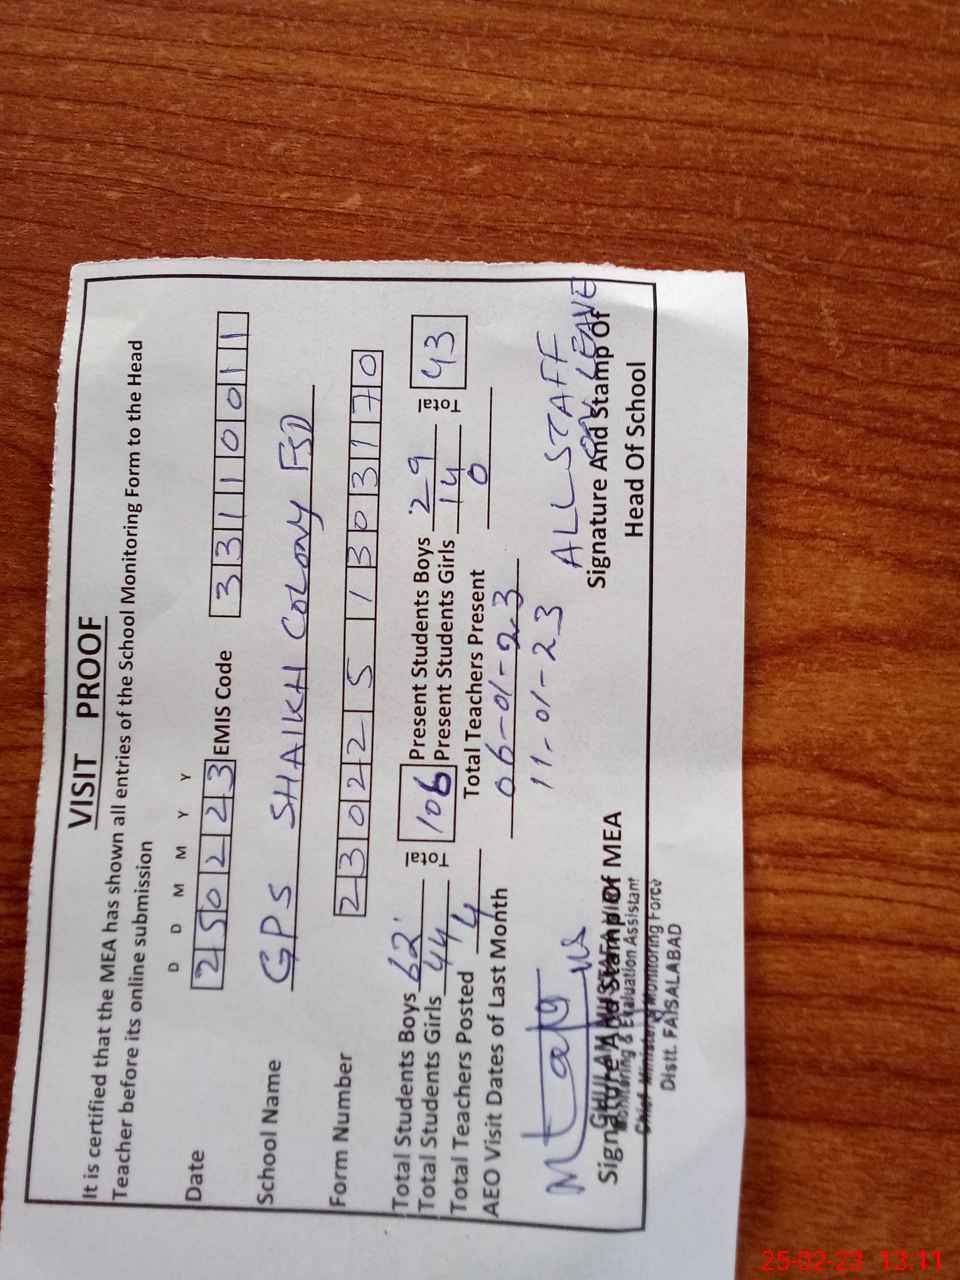 VISIT PROOF
It is certified that the MEA has shown all entries of the School Monitoring Form to the Head
Teacher before its online submission
D D M M Y Y
Date 250223 EMIS Code 33110011
School Name GPS SHAIKH COLONY FSD
Form Number 2302251303170
Total Students Boys 62 Total 106 Present Students Boys 29 Total 43
Total Students Girls 44 Present Students Girls 14
Total Teachers Posted 4 Total Teachers Present 0
AEO Visit Dates of Last Month 06-01-23
11-01-23
ALL STAFF
ON LEAVE
Signature And Stamp Of MEA
Signature And Stamp Of
Head Of School
GHULAM MUSTAFA
Monitoring & Evaluation Assistant
Chief Minister's Monitoring Force
Distt. FAISALABAD
25-02-23 13:11